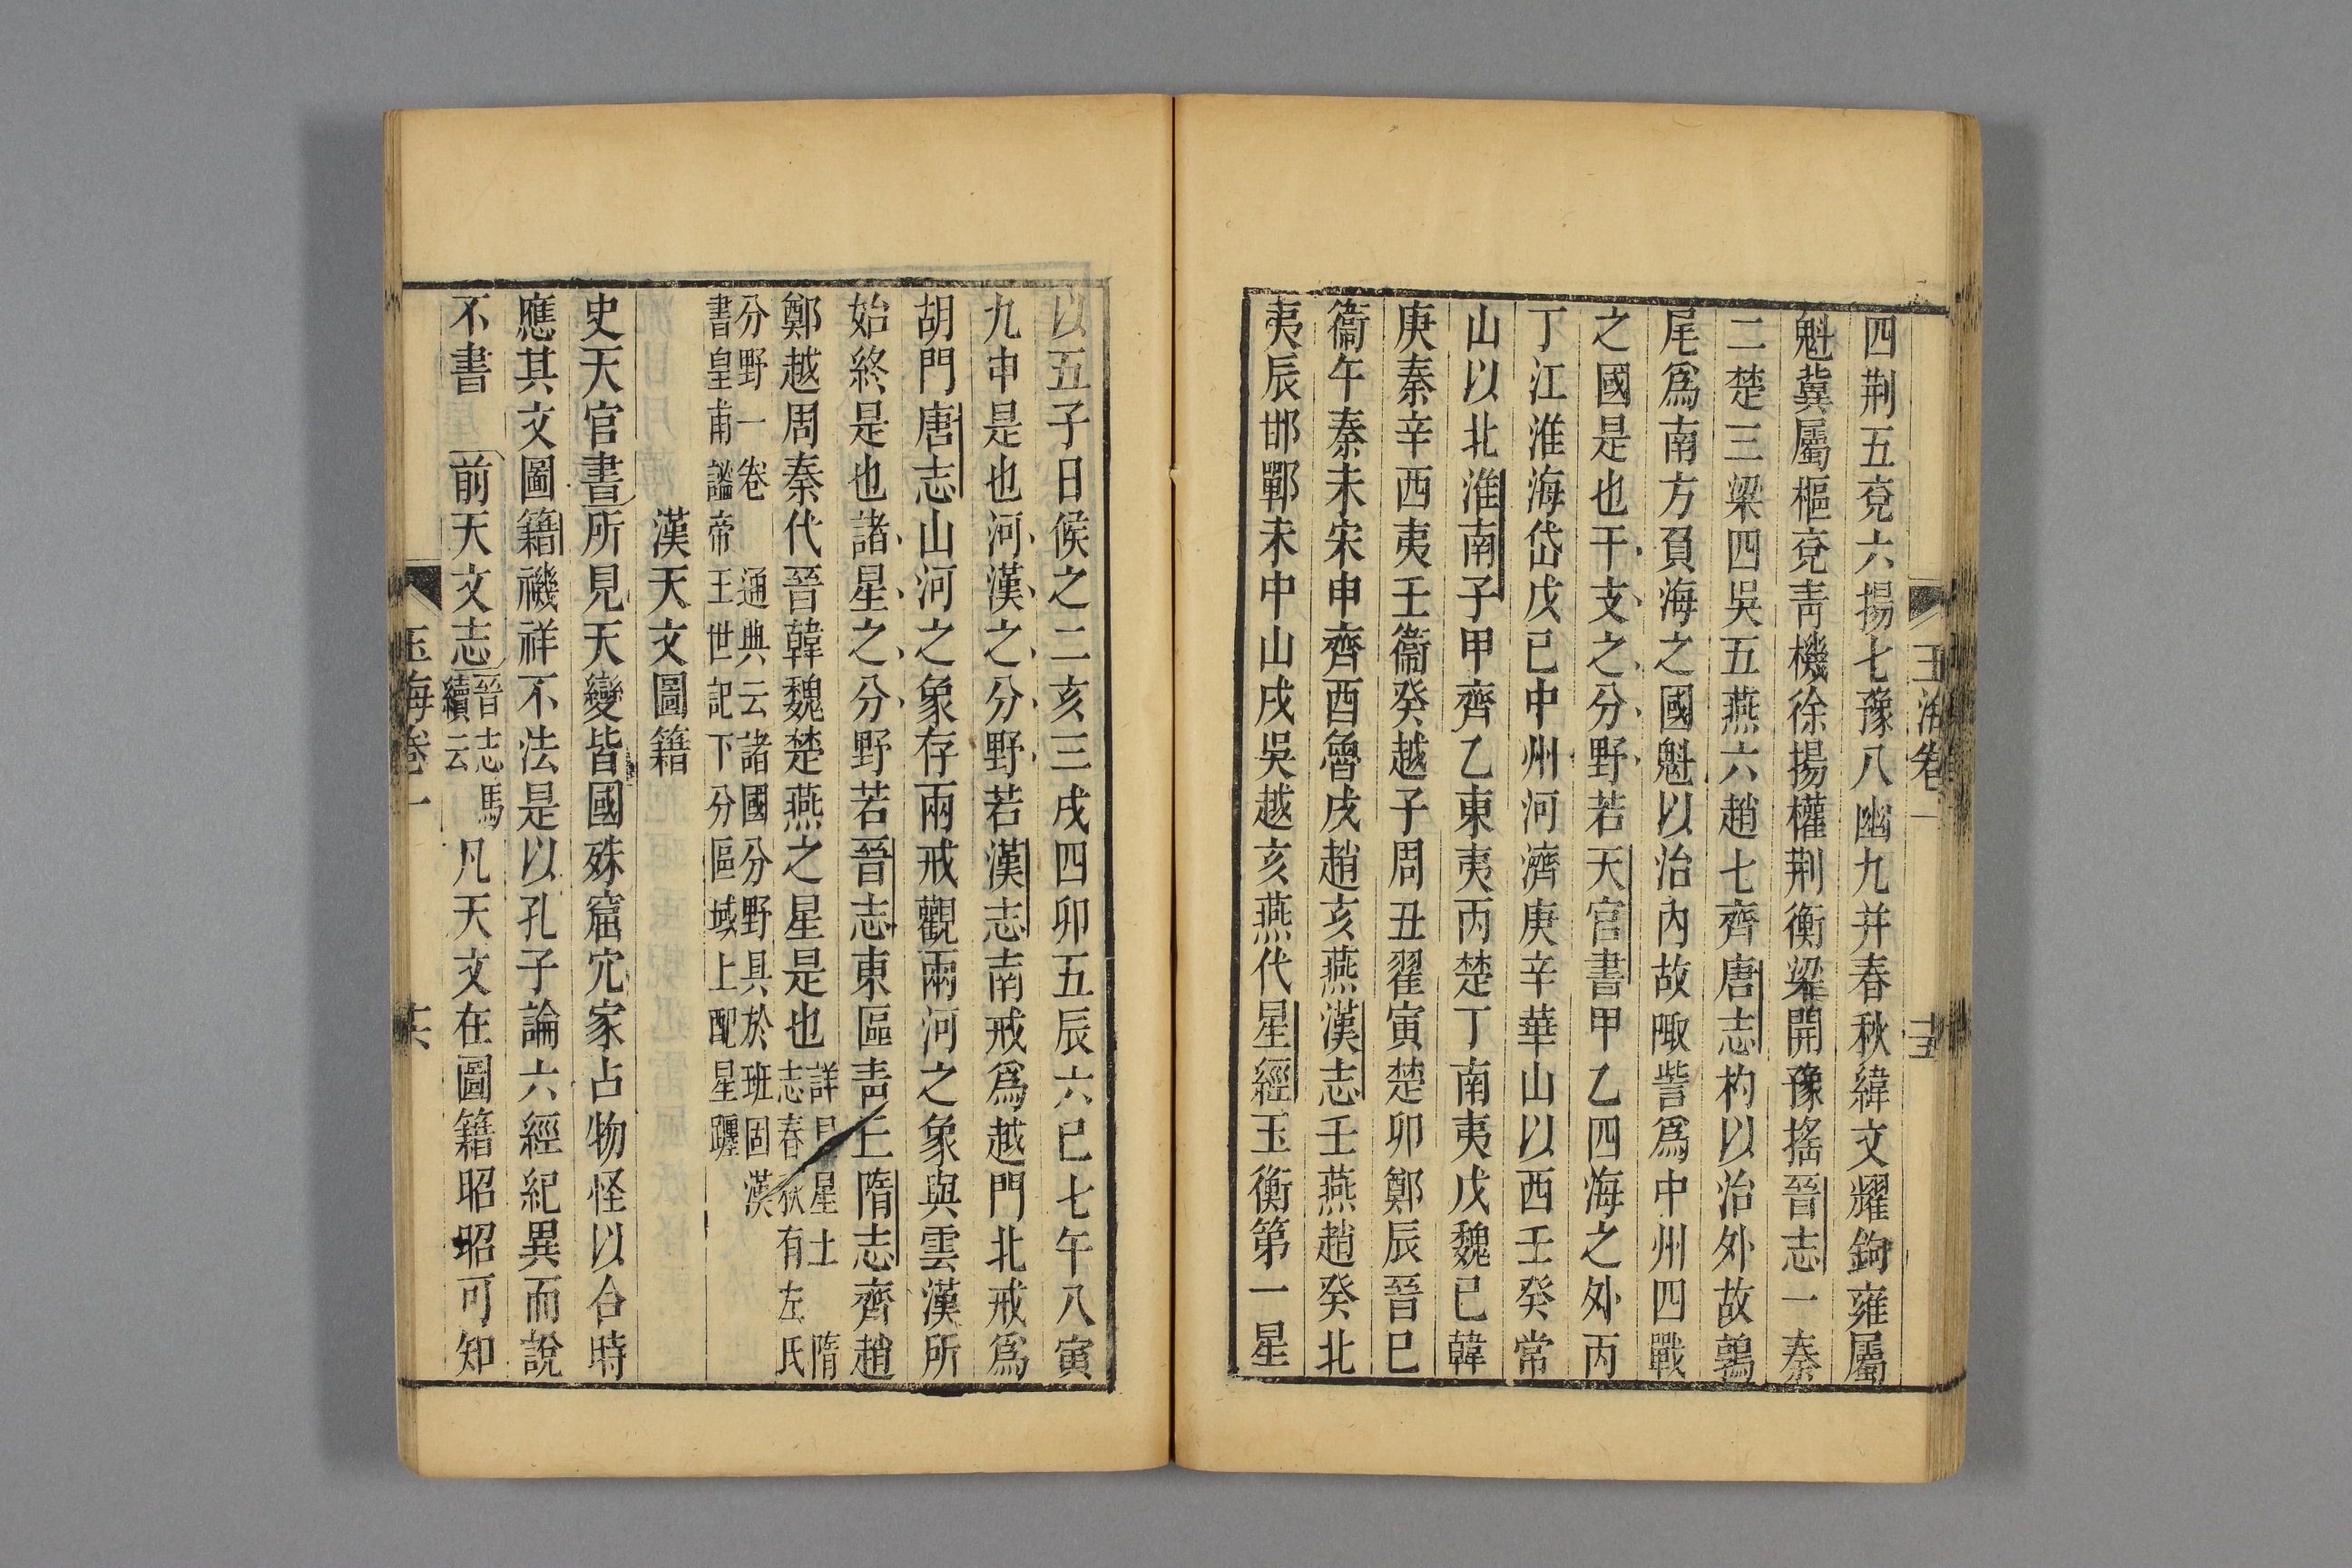 四荆五兗六揚七豫八幽九并春秋緯文耀鉤雍屬
魁冀屬樞兗青機徐揚權荆衡梁開豫搖晉志一秦
二楚三梁四吳五燕六趙七齊唐志杓以治外故鶉
尾爲南方負海之國魁以治內故陬訾爲中州四戰
之國是也干支之分野若天官書甲乙四海之外丙
丁江淮海岱戊已中州河濟庚辛華山以西壬癸常
山以北淮南子甲齊乙東夷丙楚丁南夷戊魏已韓
庚秦辛西夷壬衞癸越子周丑翟寅楚卯鄭辰晉巳
衞午秦未宋申齊酉魯戌趙亥燕漢志壬燕趙癸北
夷辰邯鄲未中山戌吳越亥燕代星經玉衡第一星
玉海卷一
十五
以五子日候之二亥三戌四卯五辰六巳七午八寅
九申是也河漢之分野若漢志南戒爲越門北戒爲
胡門唐志山河之象存兩戒觀兩河之象與雲漢所
始終是也諸星之分野若晉志東區青丘隋志齊趙
鄭越周秦代晉韓魏楚燕之星是也
星土 隋
志春秋有左氏
分野一卷 通典云諸國分野具於班固漢
書皇甫謐帝王世記下分區域上配星躔
漢天文圖籍
史天官書所見天變皆國殊窟穴家占物怪以合時
應其文圖籍禨祥不法是以孔子論六經紀異而說
不書 前天文志
晉志馬
續云
凡天文在圖籍昭昭可知
玉海卷一
十六